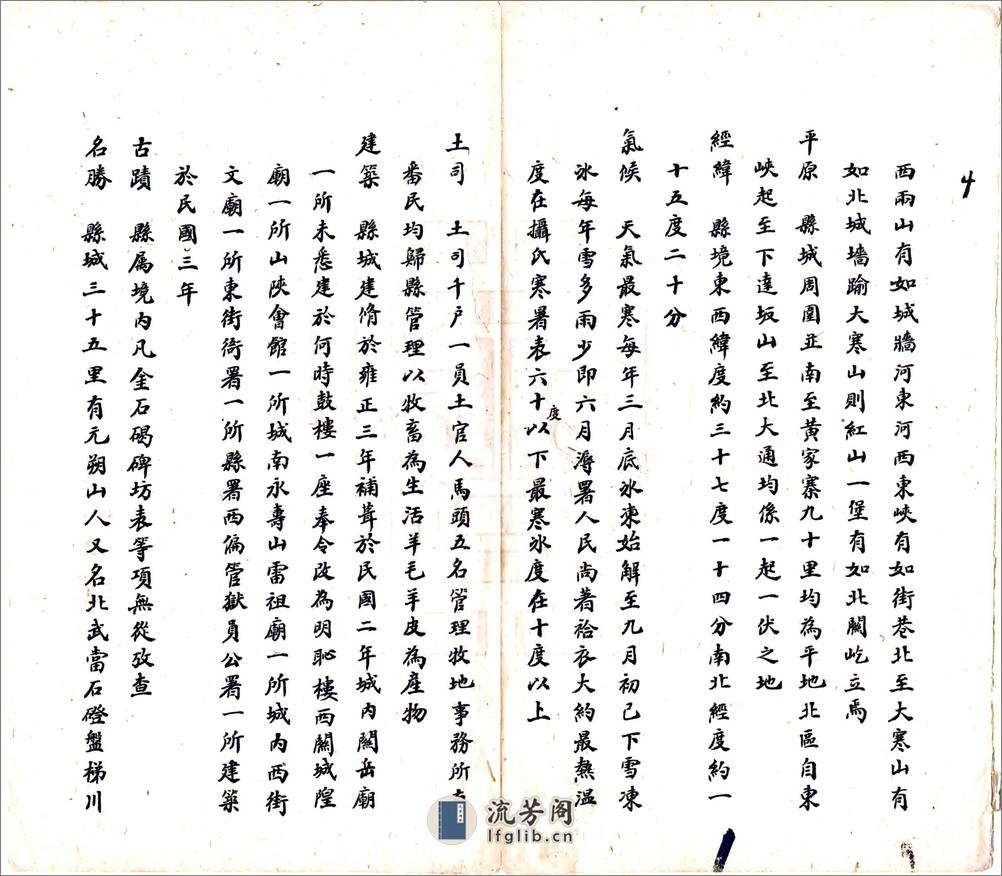 4
西兩山有如城牆河東河西東峽有如街巷北至大寒山有
如北城墻踰大寒山則紅山一堡有如北關屹立焉
平原 縣城周圍並南至黃家寨九十里均為平地北區自東
峽起至下達坂山至北大通均係一起一伏之地
經緯 縣境東西緯度約三十七度一十四分南北經度約一
十五度二十分
氣候 天氣最寒每年三月底冰凍始解至九月初已下雪凍
冰每年雪多雨少即六月溽署人民尚著袷衣大約最熱温
度在攝氏寒署表六十度以下最寒冰度在十度以上
土司 土司千戶一員土官人馬頭五名管理牧地事務所
番民均歸縣管理以牧畜為生活羊毛羊皮為產物
建築 縣城建脩於雍正三年補葺於民國二年城內關岳廟
一所未悉建於何時鼓樓一座奉令改為明恥樓西關城隍
廟一所山陝會館一所城南永壽山雷祖廟一所城内西街
文廟一所東街衙署一所縣署西偏管獄員公署一所建築
於民國三年
古蹟 縣属境内凡金石碣碑坊表等項無從攷查
名勝 縣城三十五里有元朔山人又名北武當石磴盤梯川
流芳阁
lfglib.cn